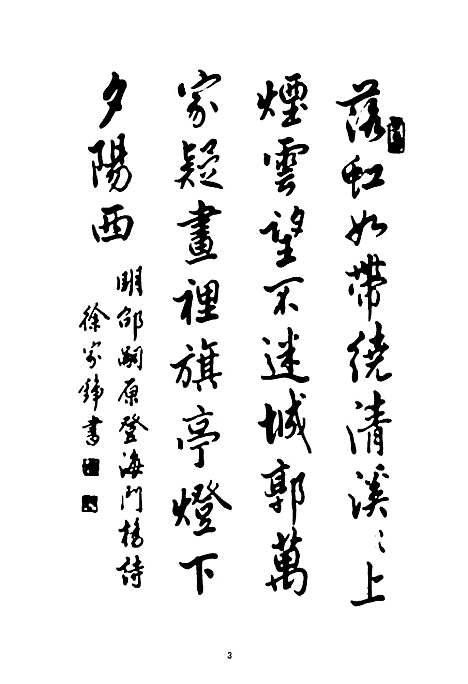 落虹如帶繞清溪〻上
煙雲望不迷城郭萬
家疑畫裡旗亭燈下
夕陽西
明邵嗣原登海門橋詩
徐家錚書
3